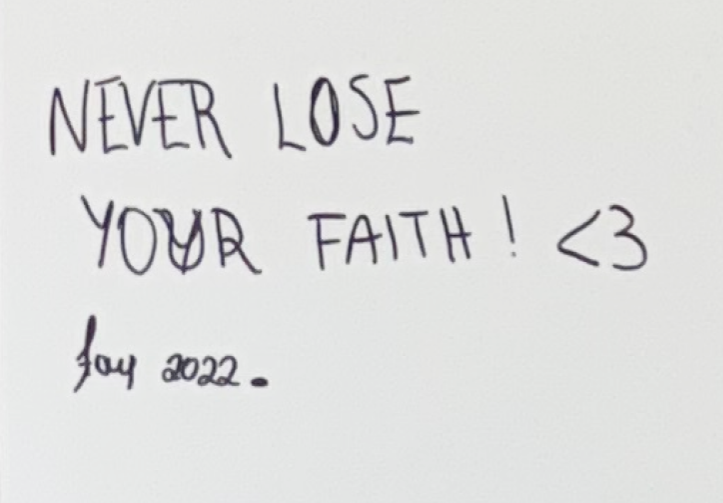 NEVER LOSE
YOUR FAITH! <3
Jay 2022.